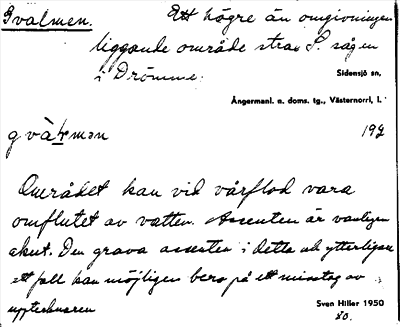 Gvalmen.
Ett högre än omgivningen
liggande område strax S. sågen
i Drömme.
Sidensjö sn,
Ångermanl. n. doms. tg., Västernorrl. l.
192
Området kan vid vårflod vara
omflutet av vatten. Assenten är vanligen
akut. Den grava accenten i detta och ytterligare
ett fall kan möjligen bero på ett misstag av
uppteckaren
Sven Hiller 1950